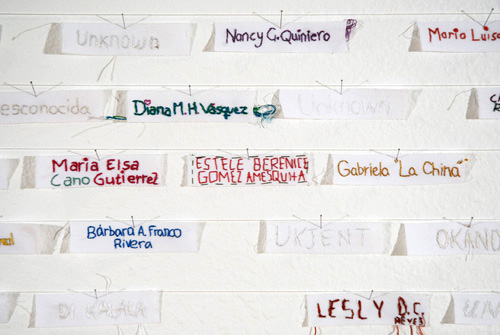 Unknown
Nancy G. Quiniero
Maria Luis
esconocida
Diana M.H. Vásquez
Unknown
Maria Elsa
Cano Gutierrez
ESTELE BERENICE
GOMEZ AMESQUHA
Gabriela "La China"
Bárbara A. Franco
Rivera
UKJENT
OKAND
LESLY D.C.
REYES